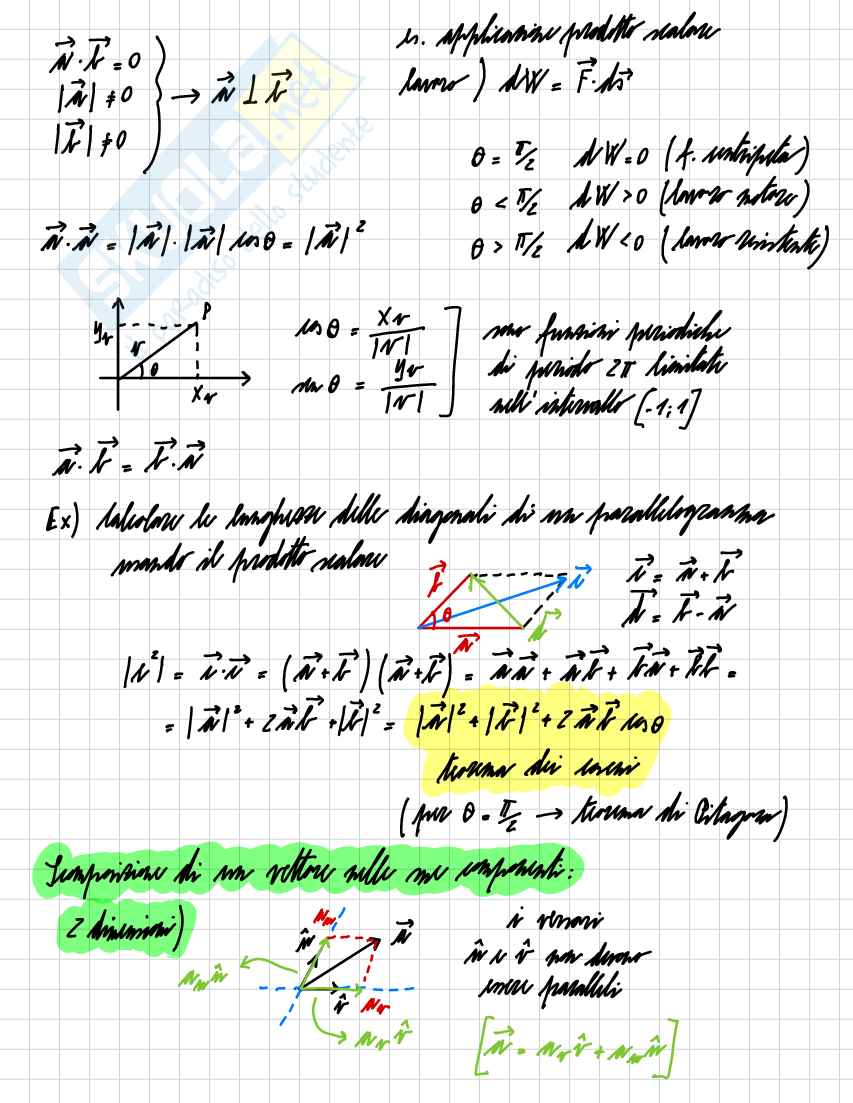 a⃗ · b⃗ = 0
|a⃗| ≠ 0
|b⃗| ≠ 0
→ a⃗ ⊥ b⃗
es. applicazione prodotto scalare
lavoro) dW = F⃗ · ds⃗
θ = π/2 dW = 0 (f. centripeta)
θ < π/2 dW > 0 (lavoro motore)
θ > π/2 dW < 0 (lavoro resistente)
a⃗ · a⃗ = |a⃗| · |a⃗| cos θ = |a⃗|²
y_v
v
P
θ
x_v
cos θ = x_v / |v|
sen θ = y_v / |v|
sono funzioni periodiche
di periodo 2π limitate
nell'intervallo [-1; 1]
a⃗ · b⃗ = b⃗ · a⃗
Ex) Calcolare le lunghezze delle diagonali di un parallelogramma
usando il prodotto scalare
b⃗
θ
a⃗
c⃗
d⃗
c⃗ = a⃗ + b⃗
d⃗ = b⃗ - a⃗
|c²| = c⃗ · c⃗ = (a⃗ + b⃗)(a⃗ + b⃗) = a⃗a⃗ + a⃗b⃗ + b⃗a⃗ + b⃗b⃗ =
= |a⃗|² + 2a⃗b⃗ + |b⃗|² = |a⃗|² + |b⃗|² + 2a⃗b⃗ cos θ
teorema dei coseni
(per θ = π/2 → teorema di Pitagora)
Scomposizione di un vettore nelle sue componenti:
2 dimensioni)
a_w
ŵ
a⃗
a_w ŵ
v̂
a_v
a_v v̂
i versori
ŵ e v̂ non devono
essere paralleli
[a⃗ = a_v v̂ + a_w ŵ]
SKUOLA.net
paradiso dello studente